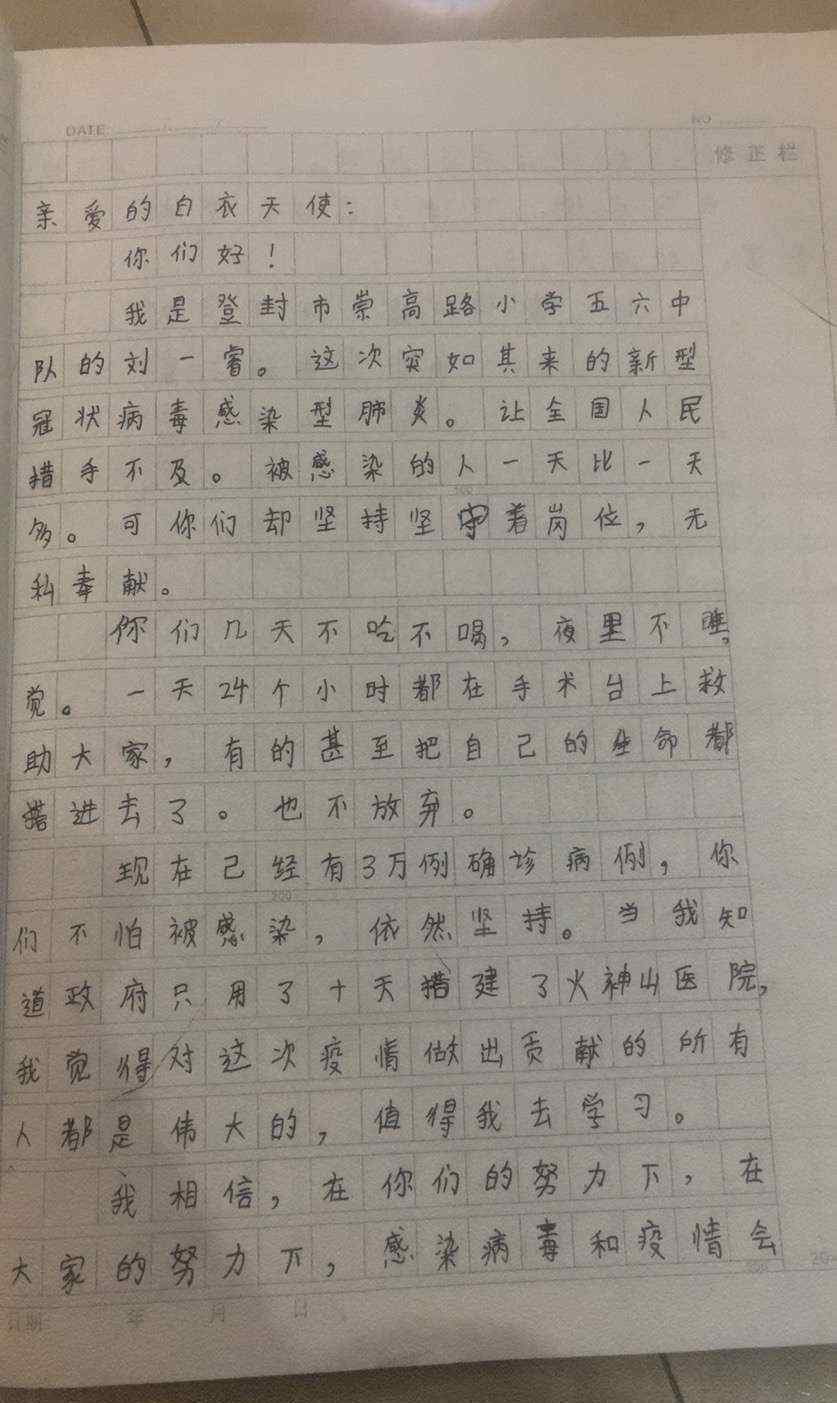 DATE
NO
修正栏
亲爱的白衣天使：
你们好！
我是登封市崇高路小学五六中
队的刘一睿。这次突如其来的新型
冠状病毒感染型肺炎。让全国人民
措手不及。被感染的人一天比一天
多。可你们却坚持坚守着岗位，无
私奉献。
你们几天不吃不喝，夜里不睡
觉。一天24个小时都在手术台上救
助大家，有的甚至把自己的生命都
搭进去了。也不放弃。
现在己经有3万例确诊病例，你
们不怕被感染，依然坚持。当我知
道政府只用了十天搭建了火神山医院，
我觉得对这次疫情做出贡献的所有
人都是伟大的，值得我去学习。
我相信，在你们的努力下，在
大家的努力下，感染病毒和疫情会
日期 年 月 日